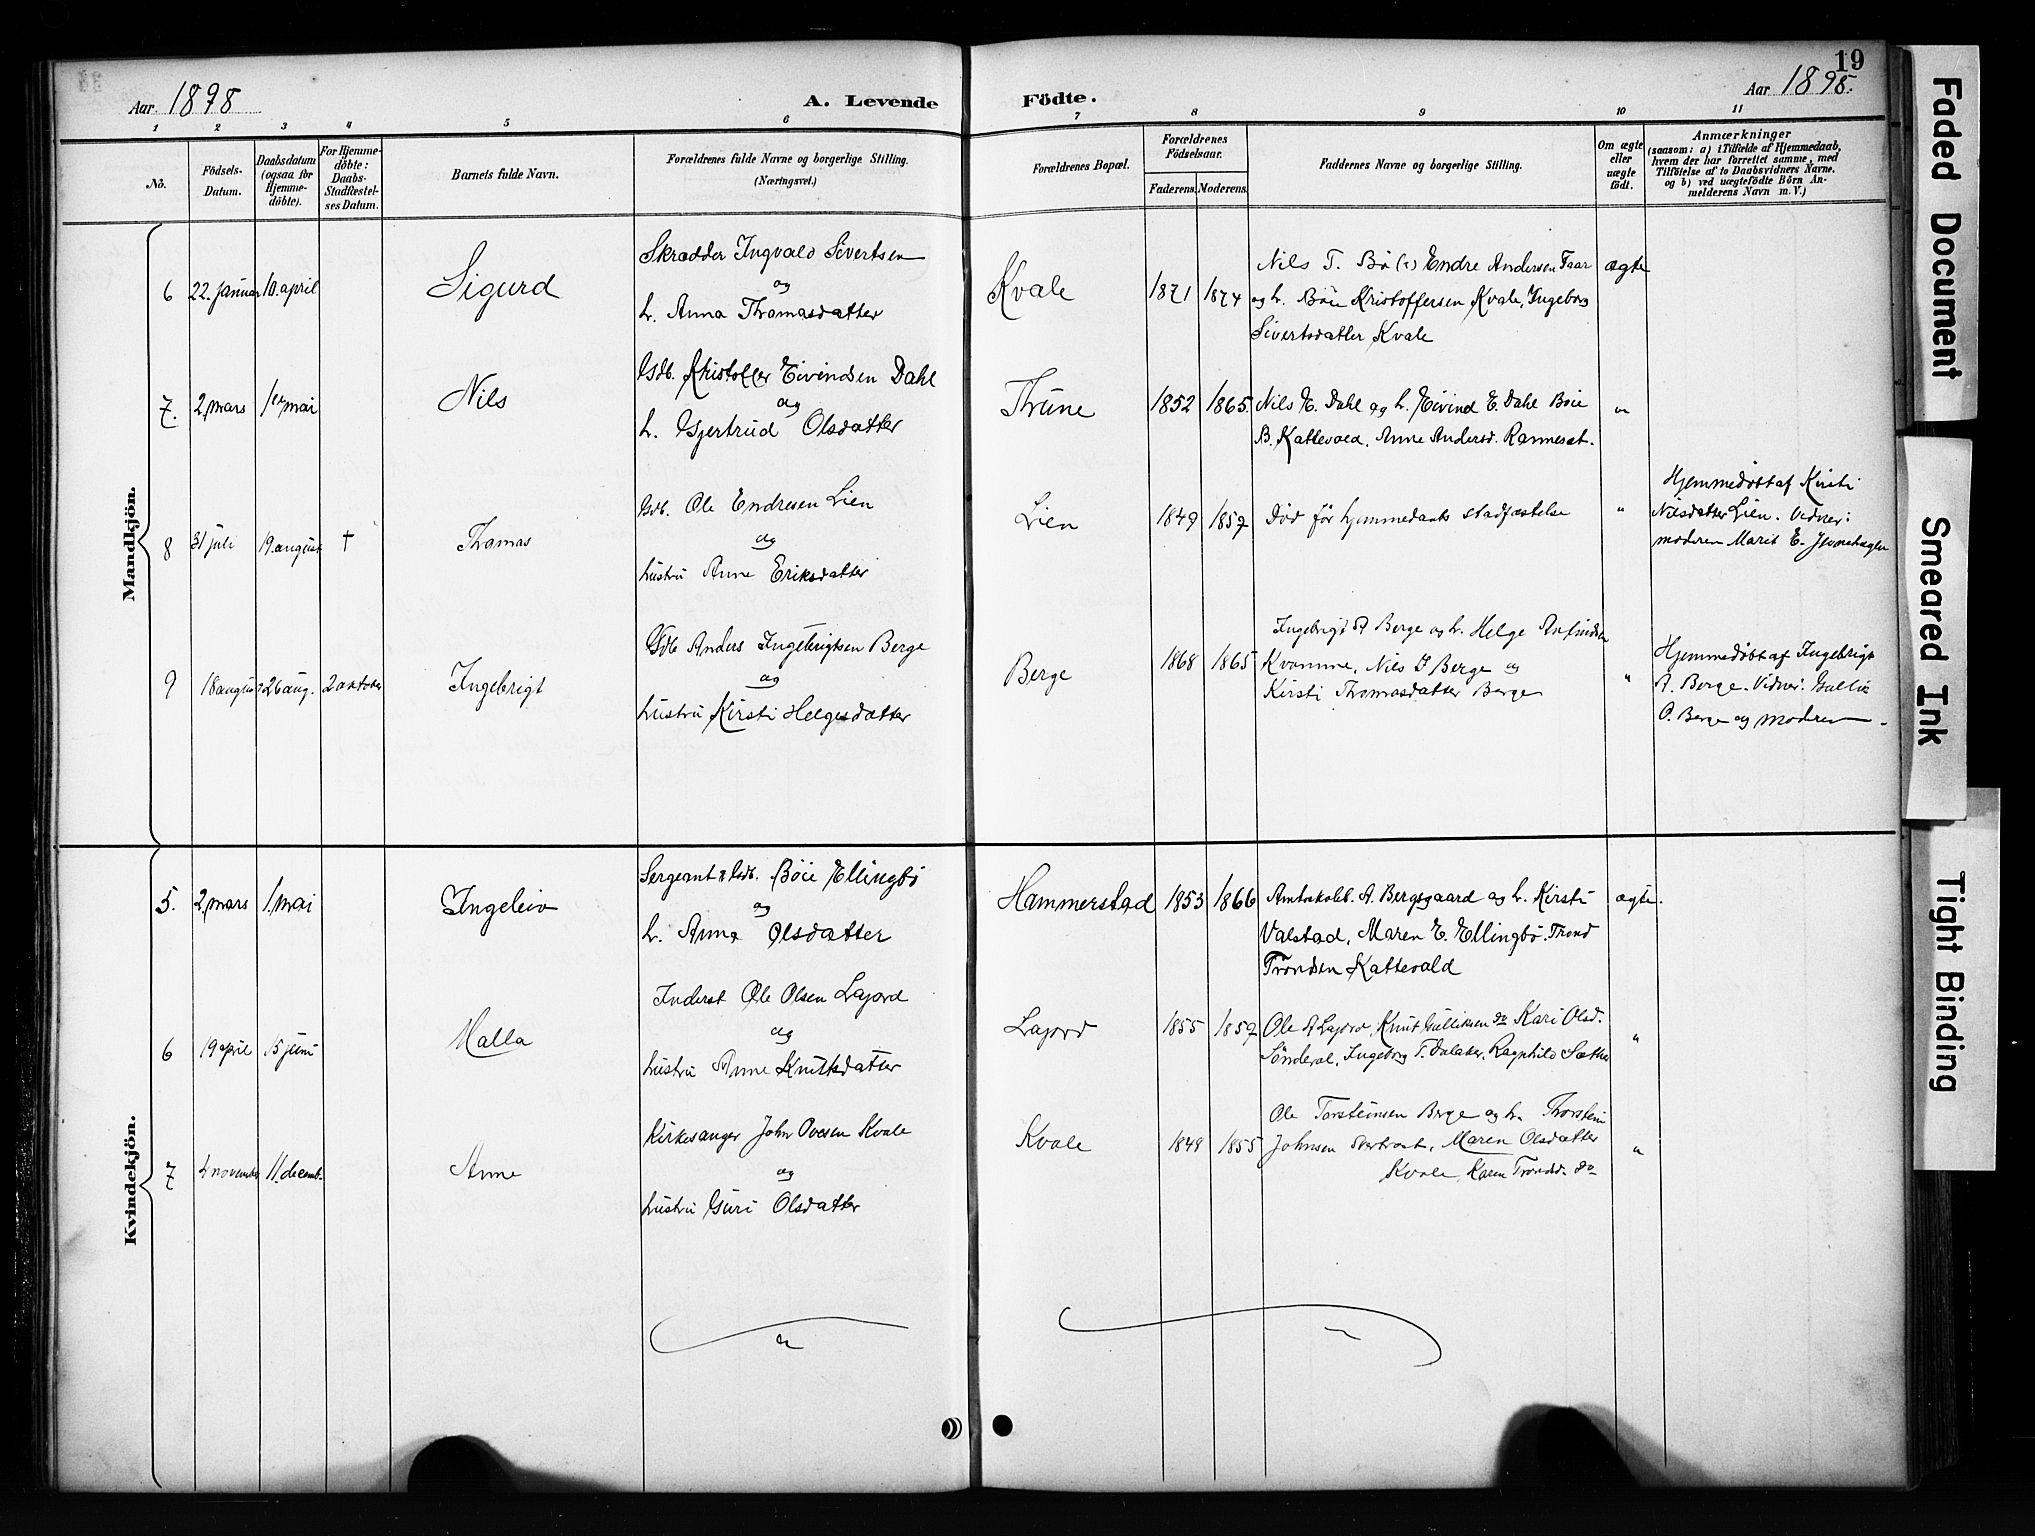 19
Aar 1898
A. Levende
Födte.
Aar 1898.
1 2 3 4 5 6 7 8 9 10 11
No.
Födsels-
Datum.
Daabsdatum
(ogsaa for
Hjemme-
döbte).
For Hjemme-
döbte:
Daabs-
Stadfæstel-
ses Datum.
Barnets fulde Navn.
Forældrenes fulde Navne og borgerlige Stilling.
(Næringsvei.)
Forældrenes Bopæl.
Forældrenes
Födselsaar.
Faderens. Moderens.
Faddernes Navne og borgerlige Stilling.
Om ægte
eller
uægte
födt.
Anmærkninger
(saasom: a) i Tilfælde af Hjemmedaab,
hvem der har forrettet samme, med
Tilföielse af to Daabsvidners Navne.
og b) ved uægtefödte Börn An-
melderens Navn m. V.)
Mandkjön.
6 22. januar 10. april
Sigurd
Skrædder Ingvald Sivertsen
og
h. Anna Thomasdatter
Kvale
1871 1874
Nils T. Bø (?) Endre Andersen Faar
og h. Bøie Kristoffersen Kvale, Ingeborg
Sivertsdatter Kvale
ægte
7. 2. mars 1ste mai
Nils
Gdb. Kristoffer Eivindsen Dahl
og
h. Gjertrud Olsdatter
Thune
1852 1865.
Nils E. Dahl og h. Eivind E. Dahl Bøie
B. Kattevold, Anne Andersd. Rannesæt.
"
8 31 juli 19. august †
Thomas
Gdb. Ole Endresen Lien
og
hustru Anne Eriksdatter
Lien
1849 1857
Død før hjemmedaabs stadfæstelse
"
Hjemmedøbt af Kirsti
Nilsdatter Lien. Vidner:
moderen Marit E.
9 18 august 26 aug. 2 oktober
Ingebrigt
Gdb Anders Ingebrigtsen Berge
og
hustru Kirsti Helgesdatter
Berge
1868 1865
Ingebrigt A Berge og h. Helge Arfindsen
Kvamme, Nils I Berge og
Kirsti Thomasdatter Berge
"
Hjemmedøbt af Ingebrigt
A. Berge. Vidner: Gullik
O. Berge og moderen.
Kvindekjön.
5. 2. mars 1. mai
Ingeleiv
Sergeant & Gdb. Bøie Ellingbø
og
h. Anne Olsdatter
Hammerstad
1853 1866
Amtsskolel. A. Bergsgaard og h. Kirsti
Valstad, Maren E. Ellingbø. Trond
Trondsen Kattevold
ægte.
6 19 april 15 juni
Malla
Inderst Ole Olsen Lajord
og
hustru Anne Knutsdatter
Lajord
1855 1857
Ole A Lajord, Knut Gulliksen do Kari Olsd.
Sønderol, Ingeborg T. Dalaker, Ragnhild Sæthe
"
7 4 november 11. decemb.
Anne
Kirkesanger John Ovesen Kvale
og
hustru Guri Olsdatter
Kvale
1848 1855
Ole Torsteinsen Berge og h. Thorstein
Johnsen, Maren Olsdatter
Kvale, Karen Trondsd. do
"
Faded Document
Smeared Ink
Tight Binding